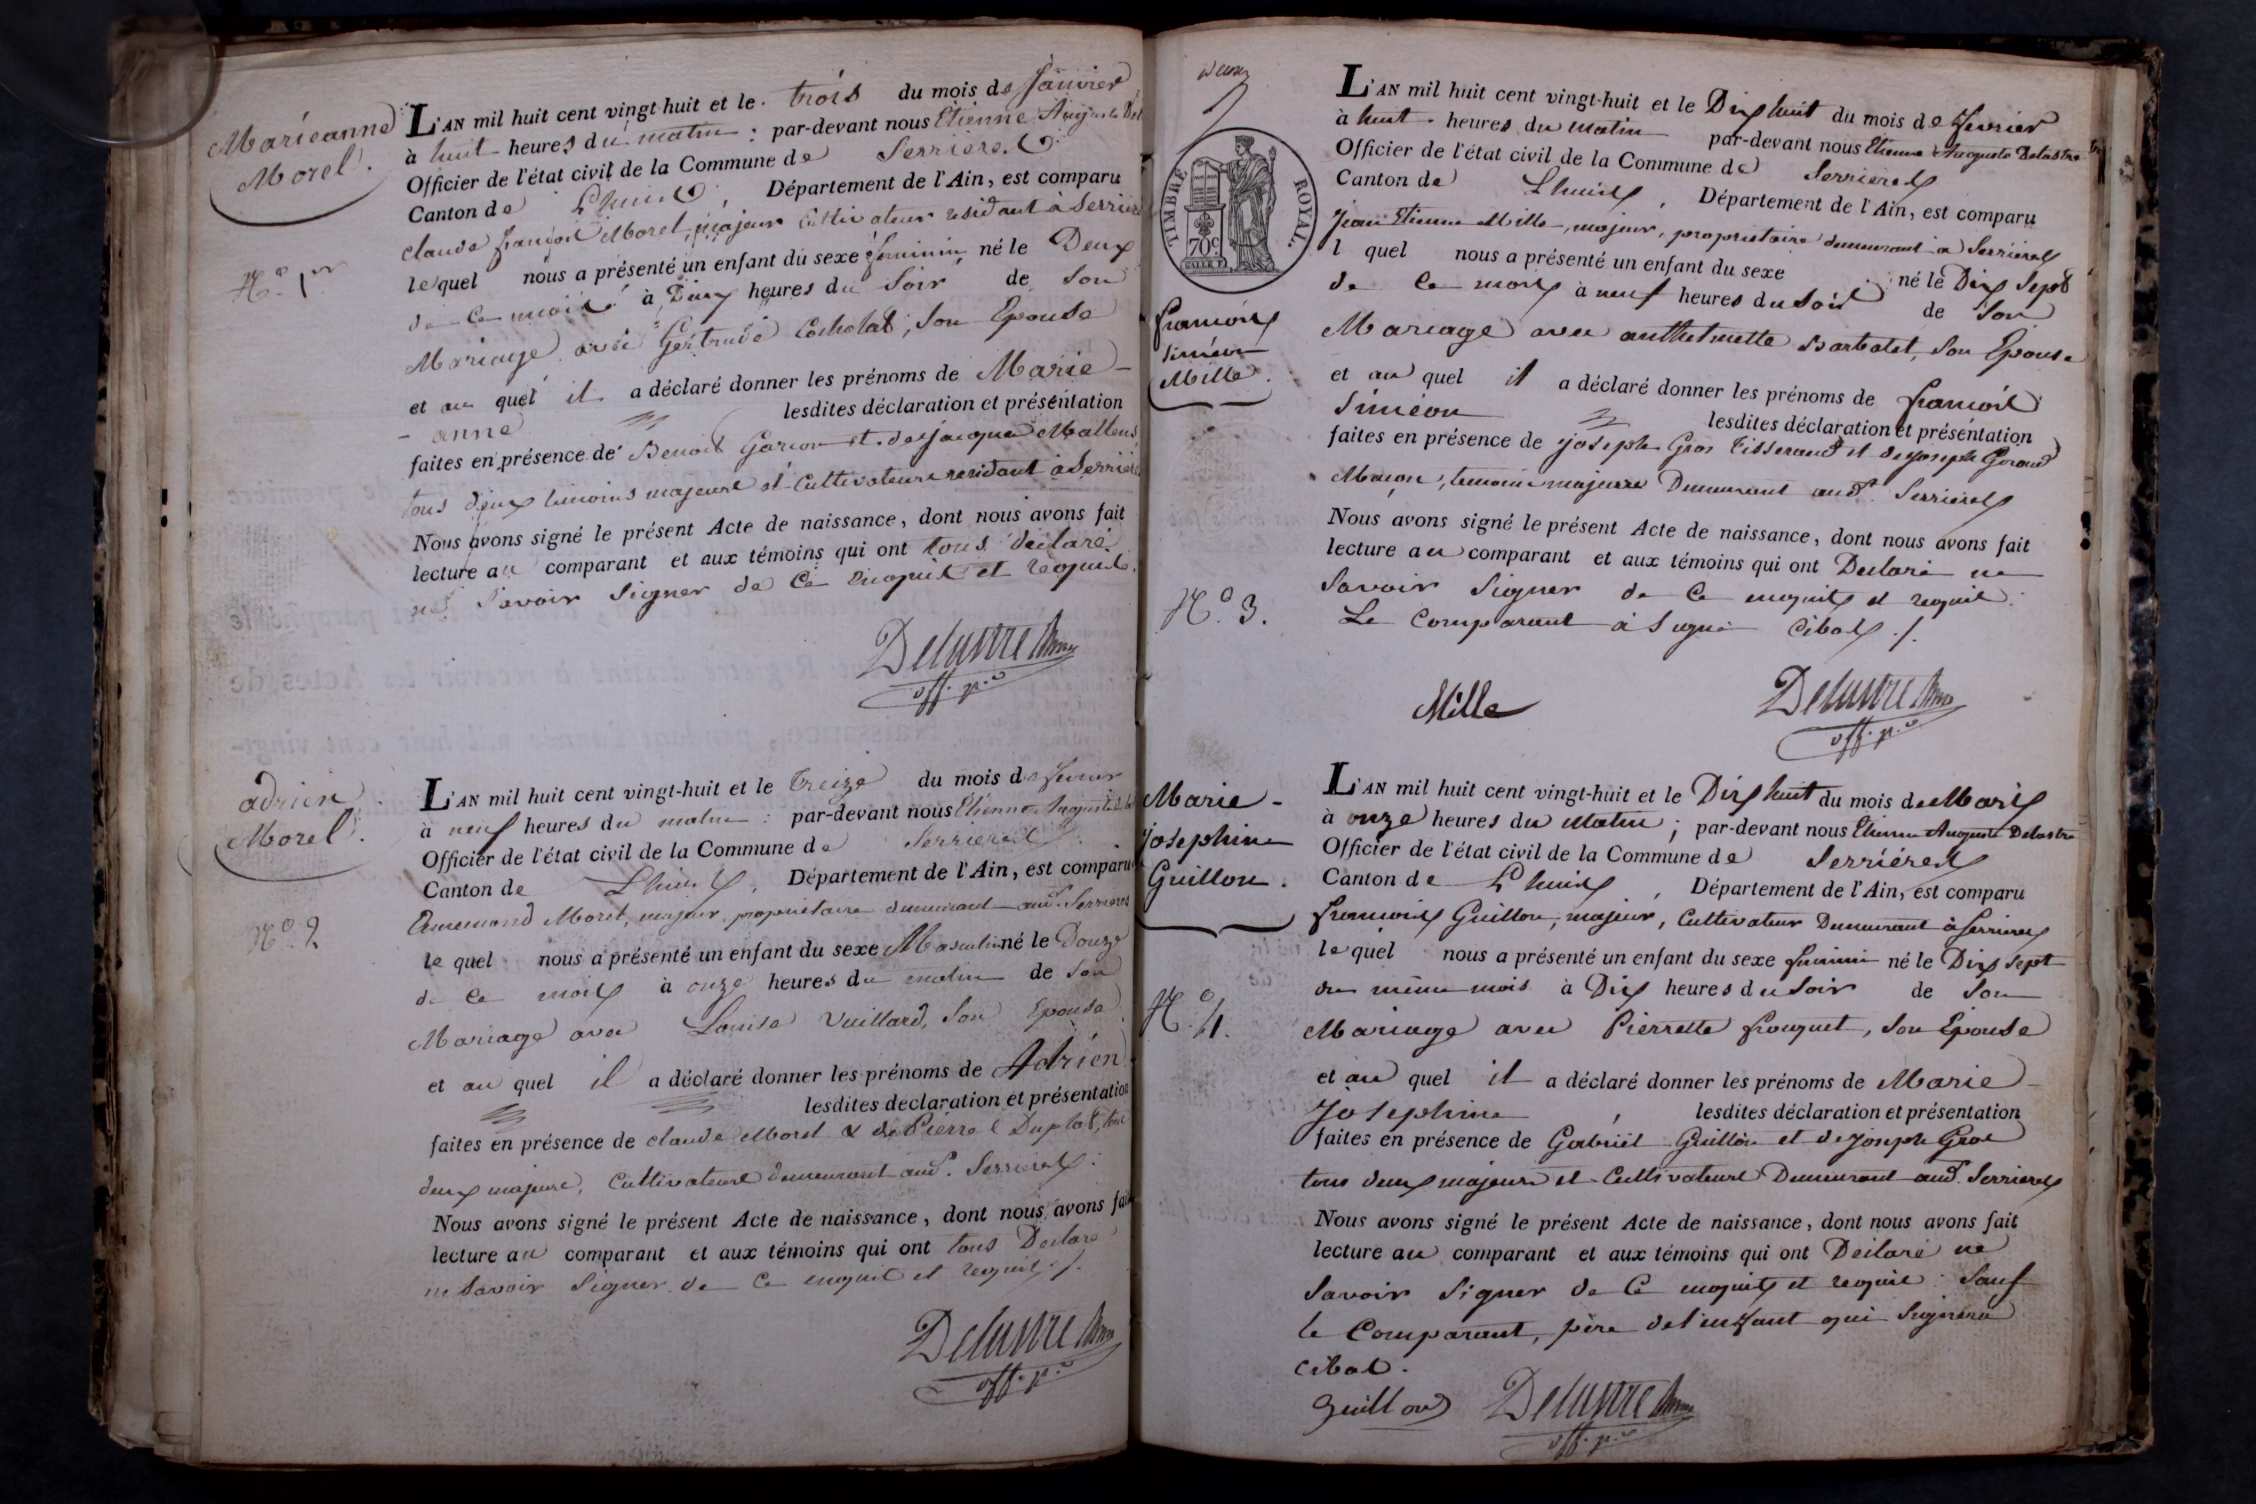 Marieanne
Morel.
N.º 1er
L'AN mil huit cent vingt-huit et le trois du mois de Janvier
à huit heures du matin : par-devant nous Etienne Auguste
Officier de l'état civil de la Commune de Serrieres
Canton de Lhuis Département de l'Ain, est comparu
claude françois Morel, majeur cultivateur residant à Serrieres
lequel nous a présenté un enfant du sexe feminin né le Deux
de ce mois à Dix heures du Soir de Son
Mariage avec Gertrude Cochelat, Son Epouse
et au quel il a déclaré donner les prénoms de Marie-
- anne lesdites déclaration et présentation
faites en présence de Benoit Garcon et de jacques
tous deux temoins majeurs et Cultivateurs residant à Serrieres
Nous avons signé le présent Acte de naissance, dont nous avons fait
lecture au comparant et aux témoins qui ont tous declaré
ne Savoir Signer de Ce enquis et requis.
Delastre
off. p.
adrien
Morel.
Nº. 2
L'AN mil huit cent vingt-huit et le treize du mois de fevrier
à neuf heures du matin : par-devant nous Etienne Auguste
Officier de l'état civil de la Commune de Serrieres
Canton de Lhuis, Département de l'Ain, est comparu
Morel, majeur, proprietaire demeurant aud. Serrieres
le quel nous a présenté un enfant du sexe Masculin né le Douze
de Ce mois à onze heures du matin de Son
Mariage avec Louise Vuillard, Son Epouse
et au quel il a déclaré donner les prénoms de Adrien
lesdites declaration et présentation
faites en présence de claude Morel & de Pierre Duplat, tous
deux majeurs, Cultivateurs demeurant aud. Serrieres.
Nous avons signé le présent Acte de naissance, dont nous avons fait
lecture au comparant et aux témoins qui ont tous Declaré
ne Savoir Signer de Ce enquis et requis ./.
Delastre
off. p.
deux
TIMBRE ROYAL.
70 c.
françois
Siméon
Mille.
Nº. 3.
L'AN mil huit cent vingt-huit et le Dix huit du mois de fevrier
à huit heures du matin par-devant nous Etienne Auguste Delastre
Officier de l'état civil de la Commune de Serrieres
Canton de Lhuis, Département de l'Ain, est comparu
Jean Etienne Mille, majeur, proprietaire demeurant à Serrieres
l quel nous a présenté un enfant du sexe né le Dix Sept
de Ce mois à neuf heures du Soir de Son
Mariage avec anthelmette Barbolat, Son Epouse
et au quel il a déclaré donner les prénoms de françois
Siméon lesdites déclaration et présentation
faites en présence de joseph Gros Tisserand et de joseph Giraud
Maçon, temoins majeurs Demeurant aud. Serrieres
Nous avons signé le présent Acte de naissance, dont nous avons fait
lecture au comparant et aux témoins qui ont Declaré ne
Savoir Signer de Ce enquis et requis.
Le Comparant à Signé Cibas ./.
Mille Delastre
off. p.
Marie-
josephine
Guillon.
Nº. 4.
L'AN mil huit cent vingt-huit et le Dix huit du mois de Mars
à onze heures du Matin ; par-devant nous Etienne Auguste Delastre
Officier de l'état civil de la Commune de Serrières
Canton de Lhuis, Département de l'Ain, est comparu
françois Guillon, majeur, Cultivateur Demeurant à Serrieres
le quel nous a présenté un enfant du sexe feminin né le Dix Sept
du même mois à Dix heures du Soir de Son
Mariage avec Pierrette fouquet, Son Epouse
et au quel il a déclaré donner les prénoms de Marie-
Josephine, lesdites déclaration et présentation
faites en présence de Gabriel Guillon et de joseph Gros
tous deux majeurs et Cultivateurs Demeurant aud. Serrieres
Nous avons signé le présent Acte de naissance, dont nous avons fait
lecture au comparant et aux témoins qui ont Declaré ne
Savoir Signer de Ce enquis et requis. Sauf
le Comparant, père de l'enfant qui Signera
cibas.
Guillon Delastre
off. p.